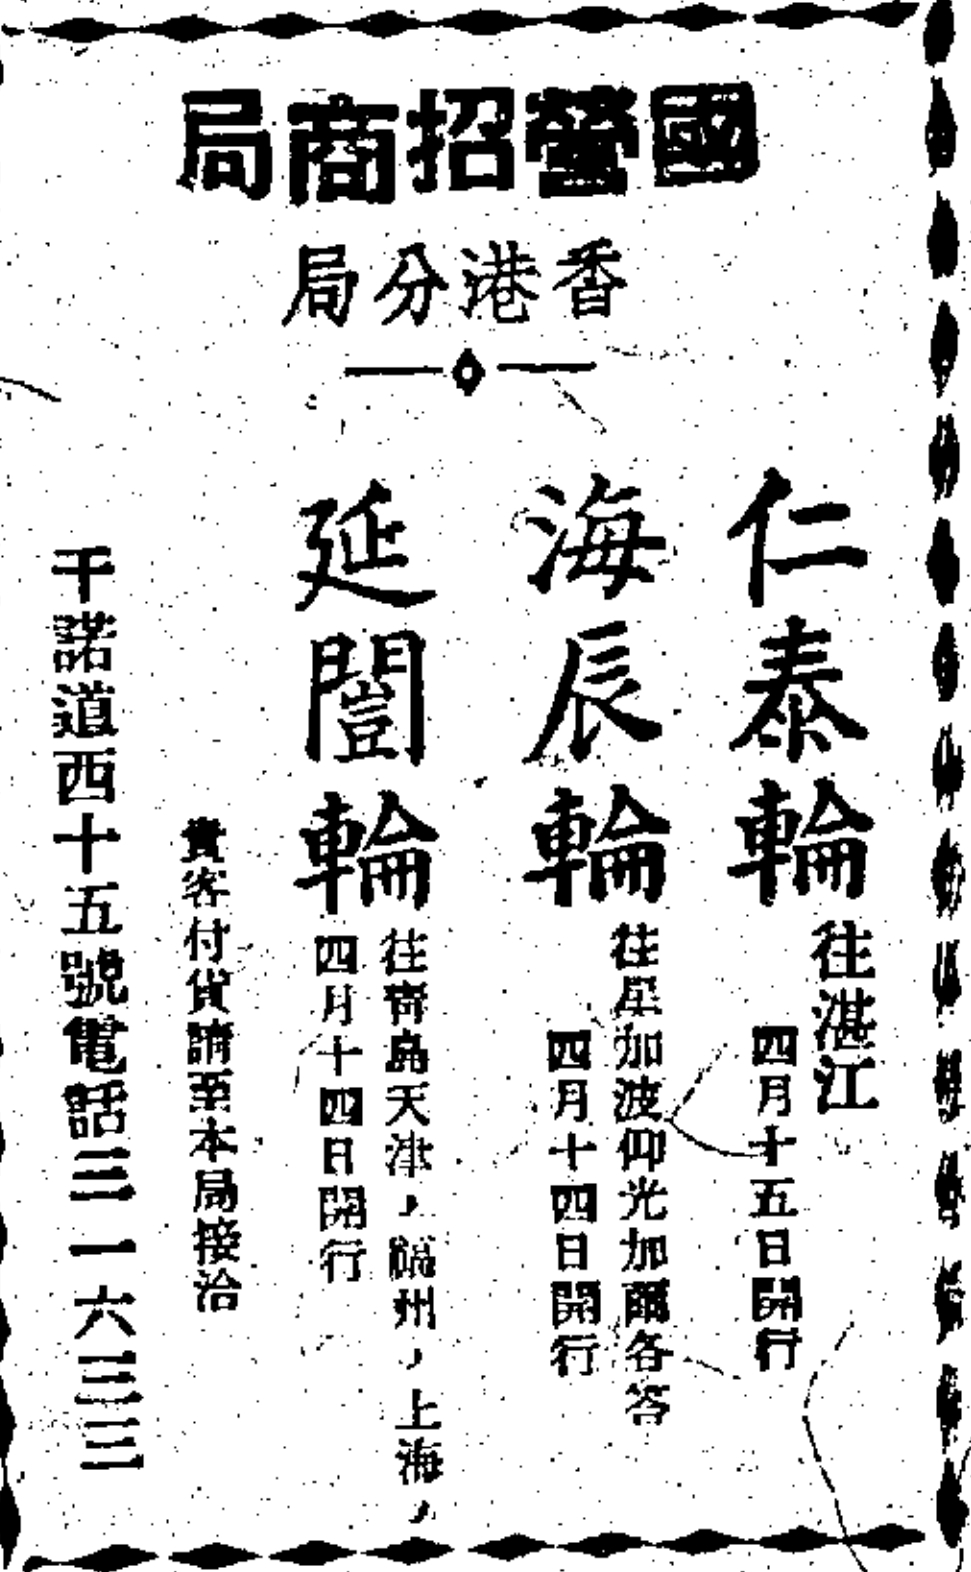 國營招商局
香港分局
仁泰輪
往湛江
四月十五日開行
海辰輪
往星加波仰光加爾各答
四月十四日開行
延闓輪
往靑島天津，福州，上海，
四月十四日開行
貴客付貨請至本局接洽
干諾道西十五號電話三一六三三